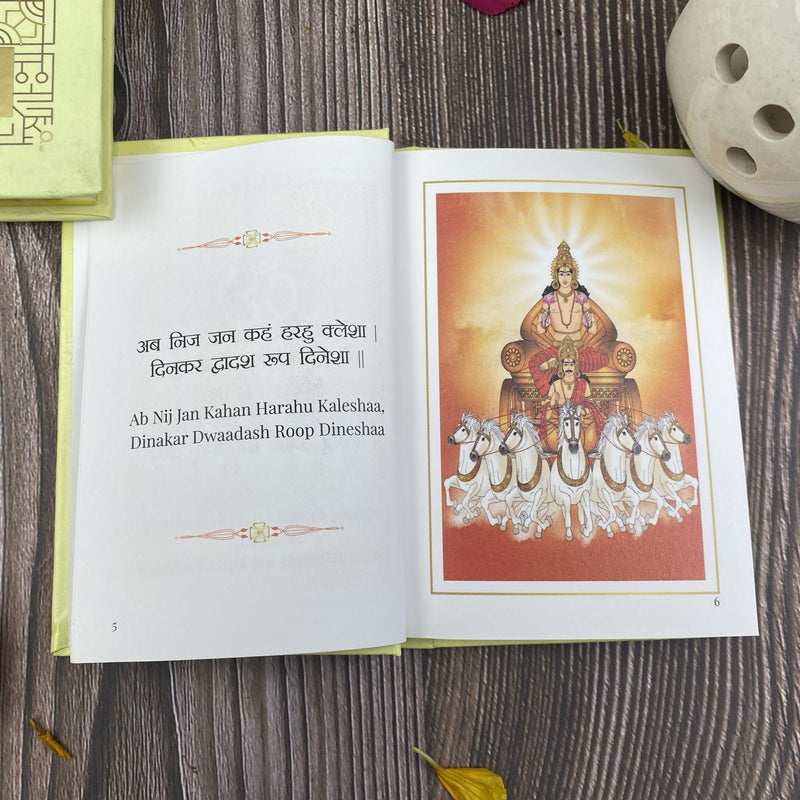 अब निज जन कहं हरहु क्लेशा |
दिनकर द्वादश रूप दिनेशा ||
Ab Nij Jan Kahan Harahu Kaleshaa,
Dinakar Dwaadash Roop Dineshaa
5
6